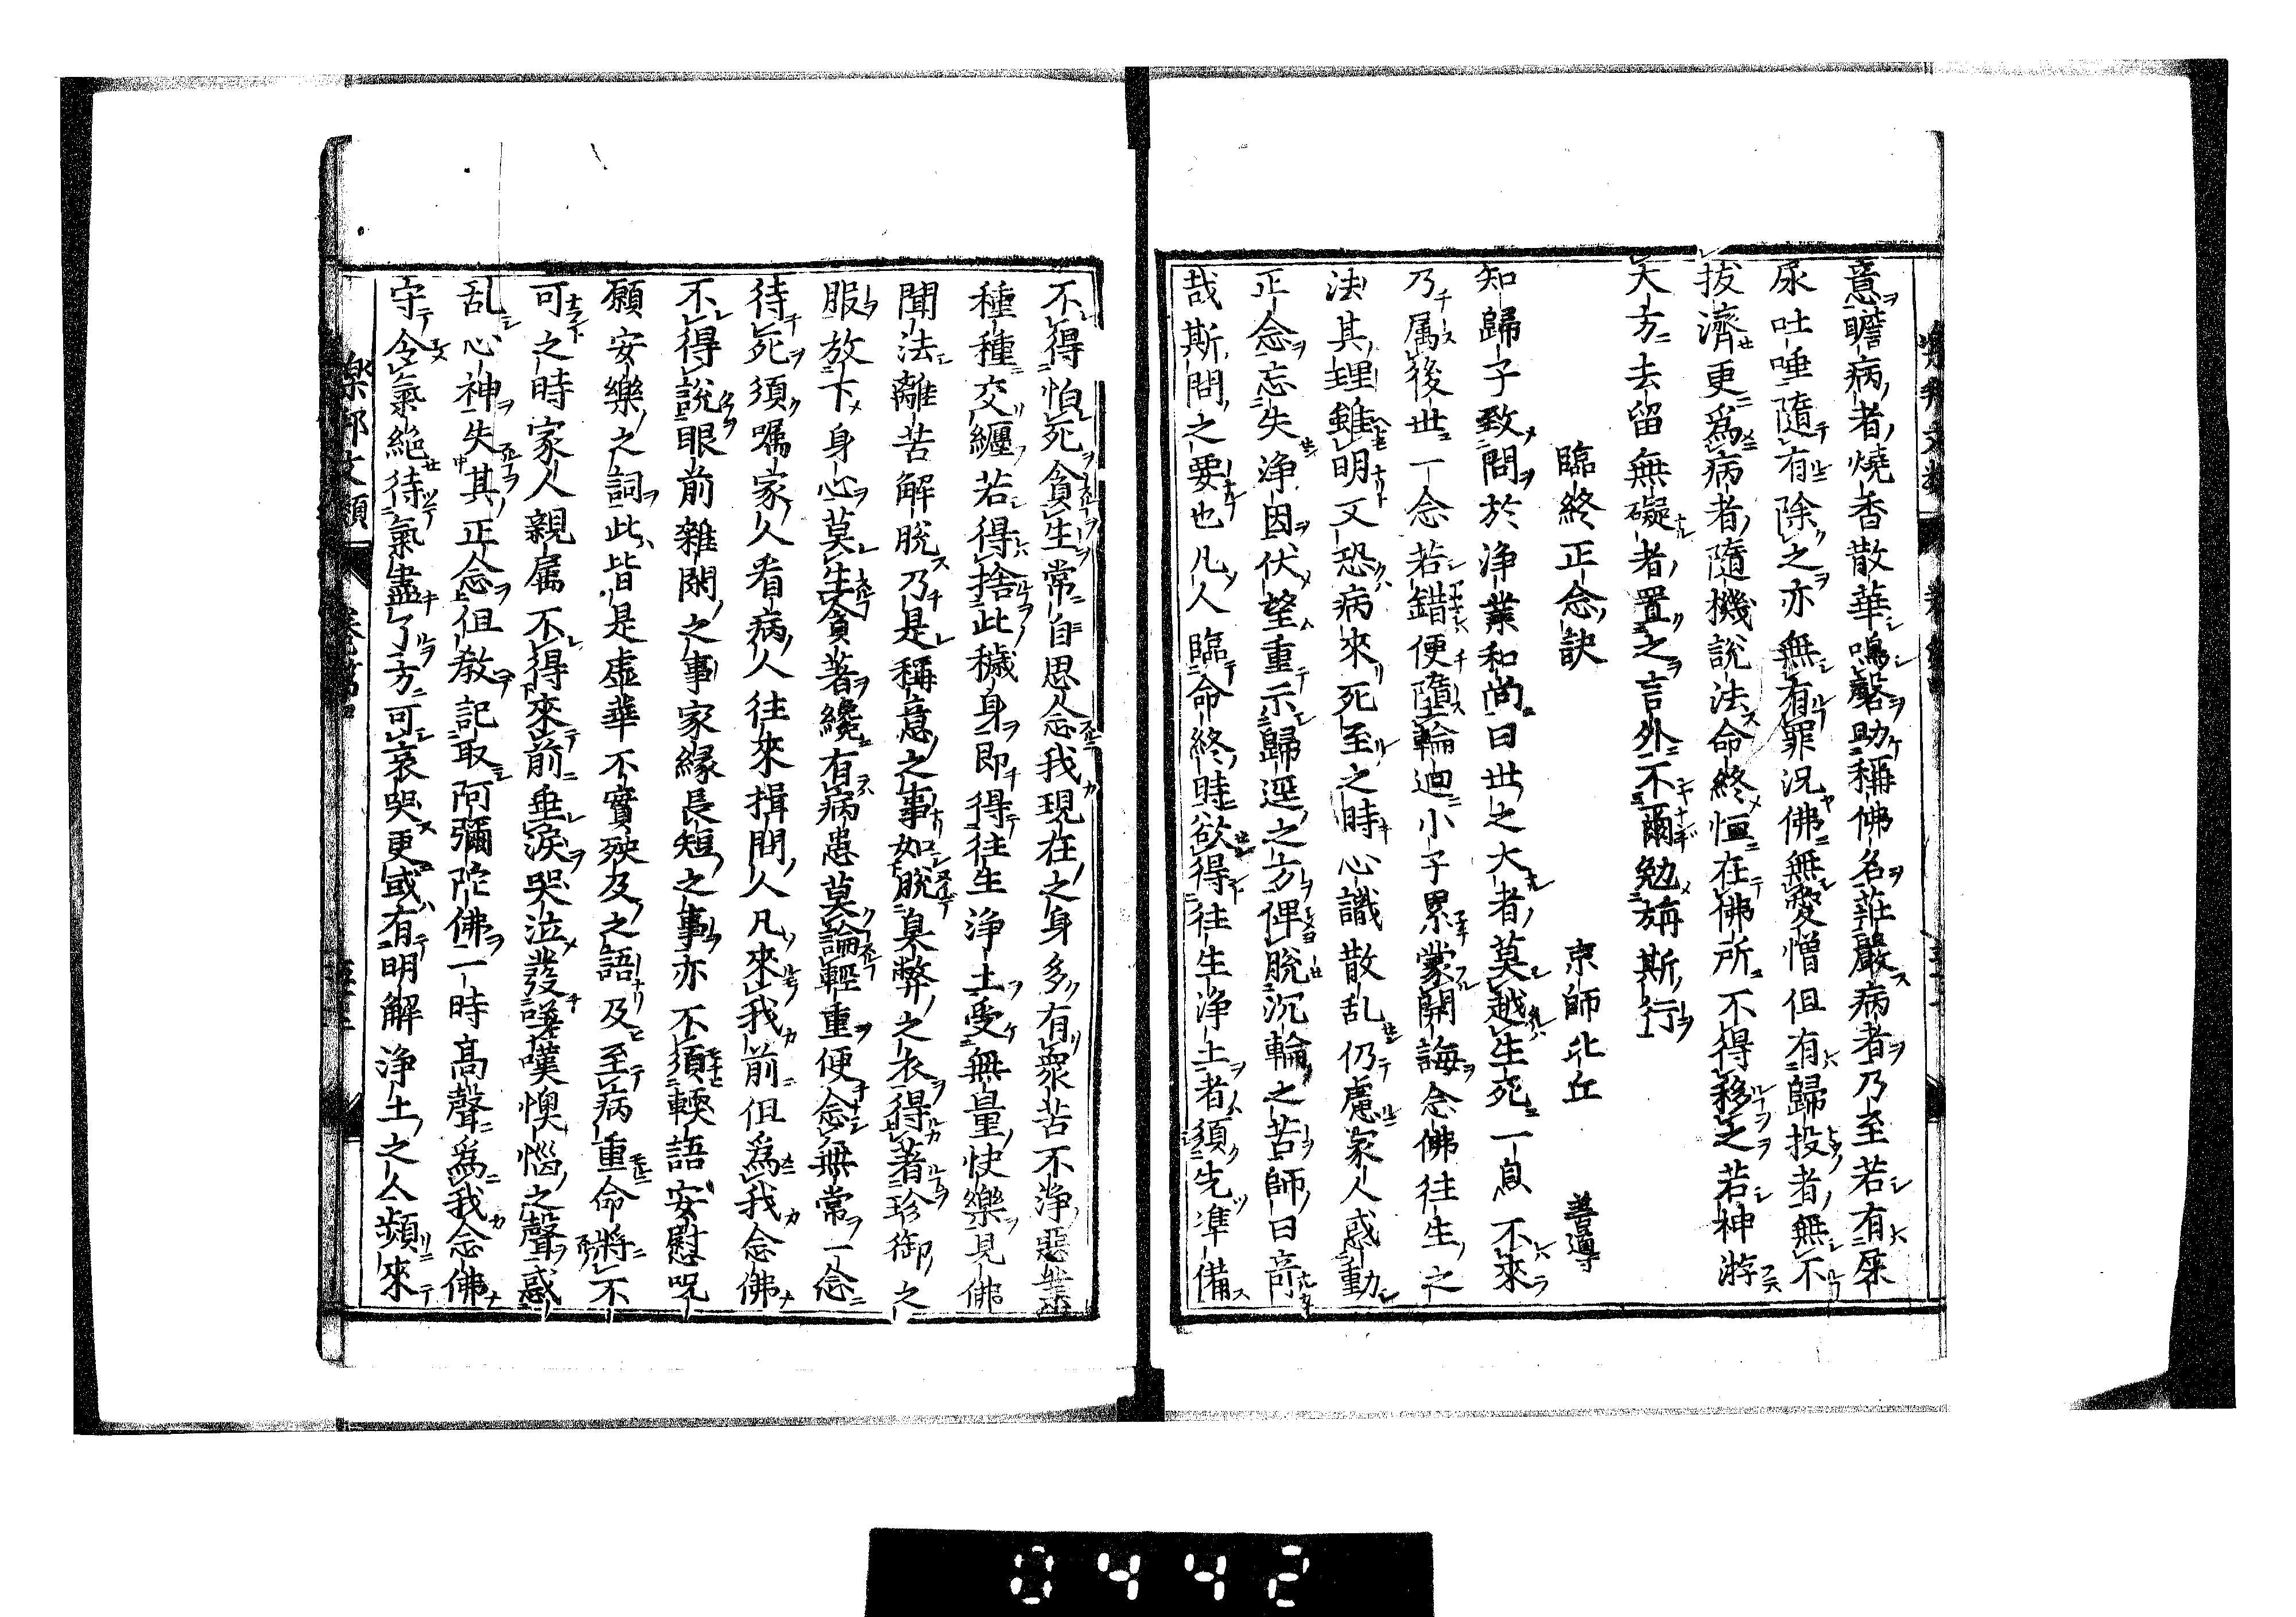 意瞻病者燒香散華鳴磬助稱佛名莊嚴病者乃至若有屎
尿吐唾隨有除之亦無有罪況佛無愛憎但有歸投者無不
拔濟更爲病者隨機說法命終恒在佛所不得移之若神游
大方去留無礙者置之言外不爾勉旃斯行
臨終正念訣 京師比丘 善導
知歸子致問於淨業和尚曰世之大者莫越生死一息不來
乃属後世一念若錯便墮輪迴小子累蒙開誨念佛往生之
法其理雖明又恐病來死至之時心識散乱仍慮家人惑動
正念忘失淨因伏望重示歸逕之方俾脫沉輪之苦師曰奇
哉斯問之要也凡人臨命終時欲得往生淨土者須先準備
不得怕死貪生常自思念我現在之身多有衆苦不淨惡業
種種交纏若得捨此穢身即得往生淨土受無量快樂見佛
聞法離苦解脫乃是稱意之事如脫臭弊之衣得著珍御之
服放下身心莫生貪著纔有病患莫論輕重便念無常一念
待死須嘱家人看病人往來揖問人凡來我前但爲我念佛
不得說眼前雜閑之事家緣長短之事亦不須輭語安慰呪
願安樂之詞此皆是虛華不實殃及之語及至病重命將不
可之時家人親属不得來前垂淚哭泣發嗟嘆懊惱之聲惑
乱心神失其正念但教記取阿彌陀佛一時高聲爲我念佛
守令氣絕待氣盡了方可哀哭更或有明解淨土之人頻來
樂邦文類
0442